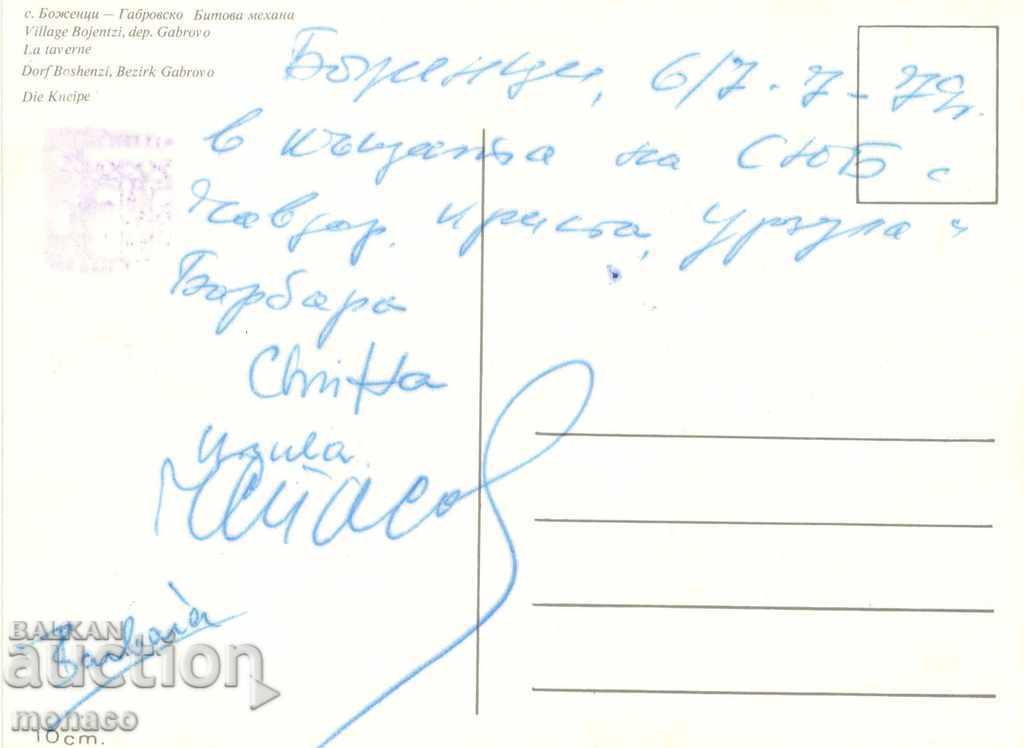 с. Боженци — Габровско Битова механа
Village Bojentzi, dep. Gabrovo
La taverne
Dorf Boshenzi, Bezirk Gabrovo
Die Kneipe
Боженци, 6/7.7-79г.
в къщата на СЮБ с
Чавдар, Криста, Урзула и
Барбара
Barbara
BALKAN
auction
monaco
10 ст.